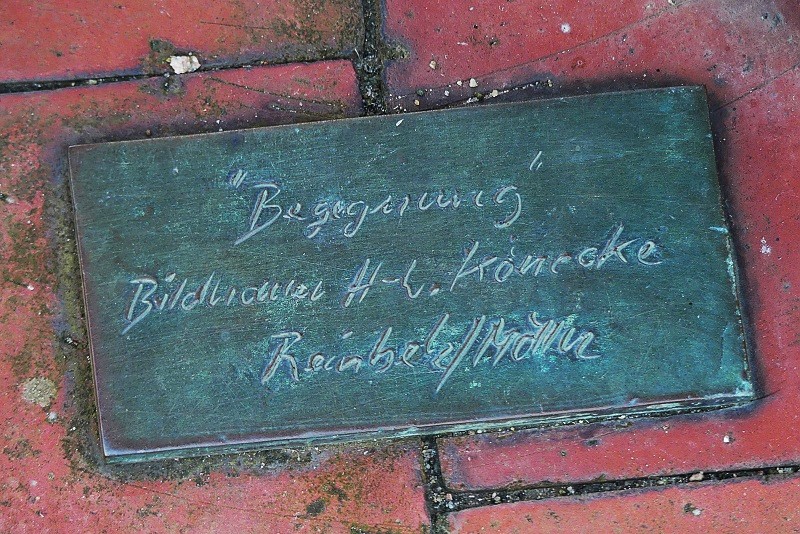 "Begegnung"
Bildhauer H-L. Könecke
Reinbek/Mölln